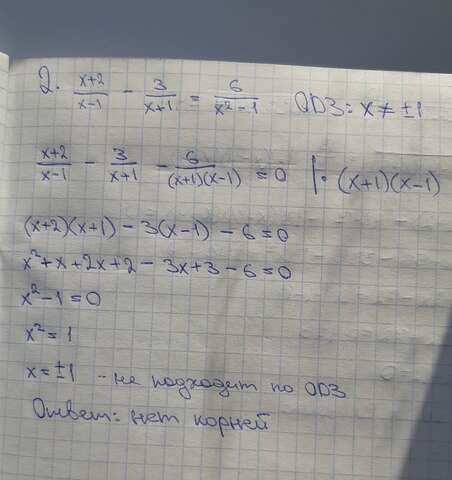 2. (x+2)/(x-1) - 3/(x+1) = 6/(x²-1) ОДЗ: x ≠ ±1
(x+2)/(x-1) - 3/(x+1) - 6/((x+1)(x-1)) = 0 |· (x+1)(x-1)
(x+2)(x+1) - 3(x-1) - 6 = 0
x² + x + 2x + 2 - 3x + 3 - 6 = 0
x² - 1 = 0
x² = 1
x = ±1 - не подходит по ОДЗ
Ответ: нет корней